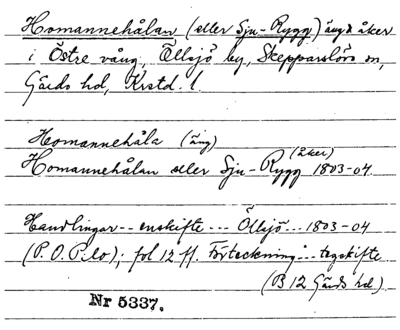 Homannehålan (eller Sju-Rygg) äng & åker
i Östre vång, Öllsjö by, Skepparslövs sn,
Gärds hd, Krstd. l.
Homannehåla (äng)
Homannehålan eller Sju-Rygg (åker) 1803-04
Handlingar -- enskifte --- Öllsjö --- 1803-04
(P.O.P:lo); fol 12 ff. Förteckning -- tegskifte
(B 12 Gärds hd)
Nr 5337.